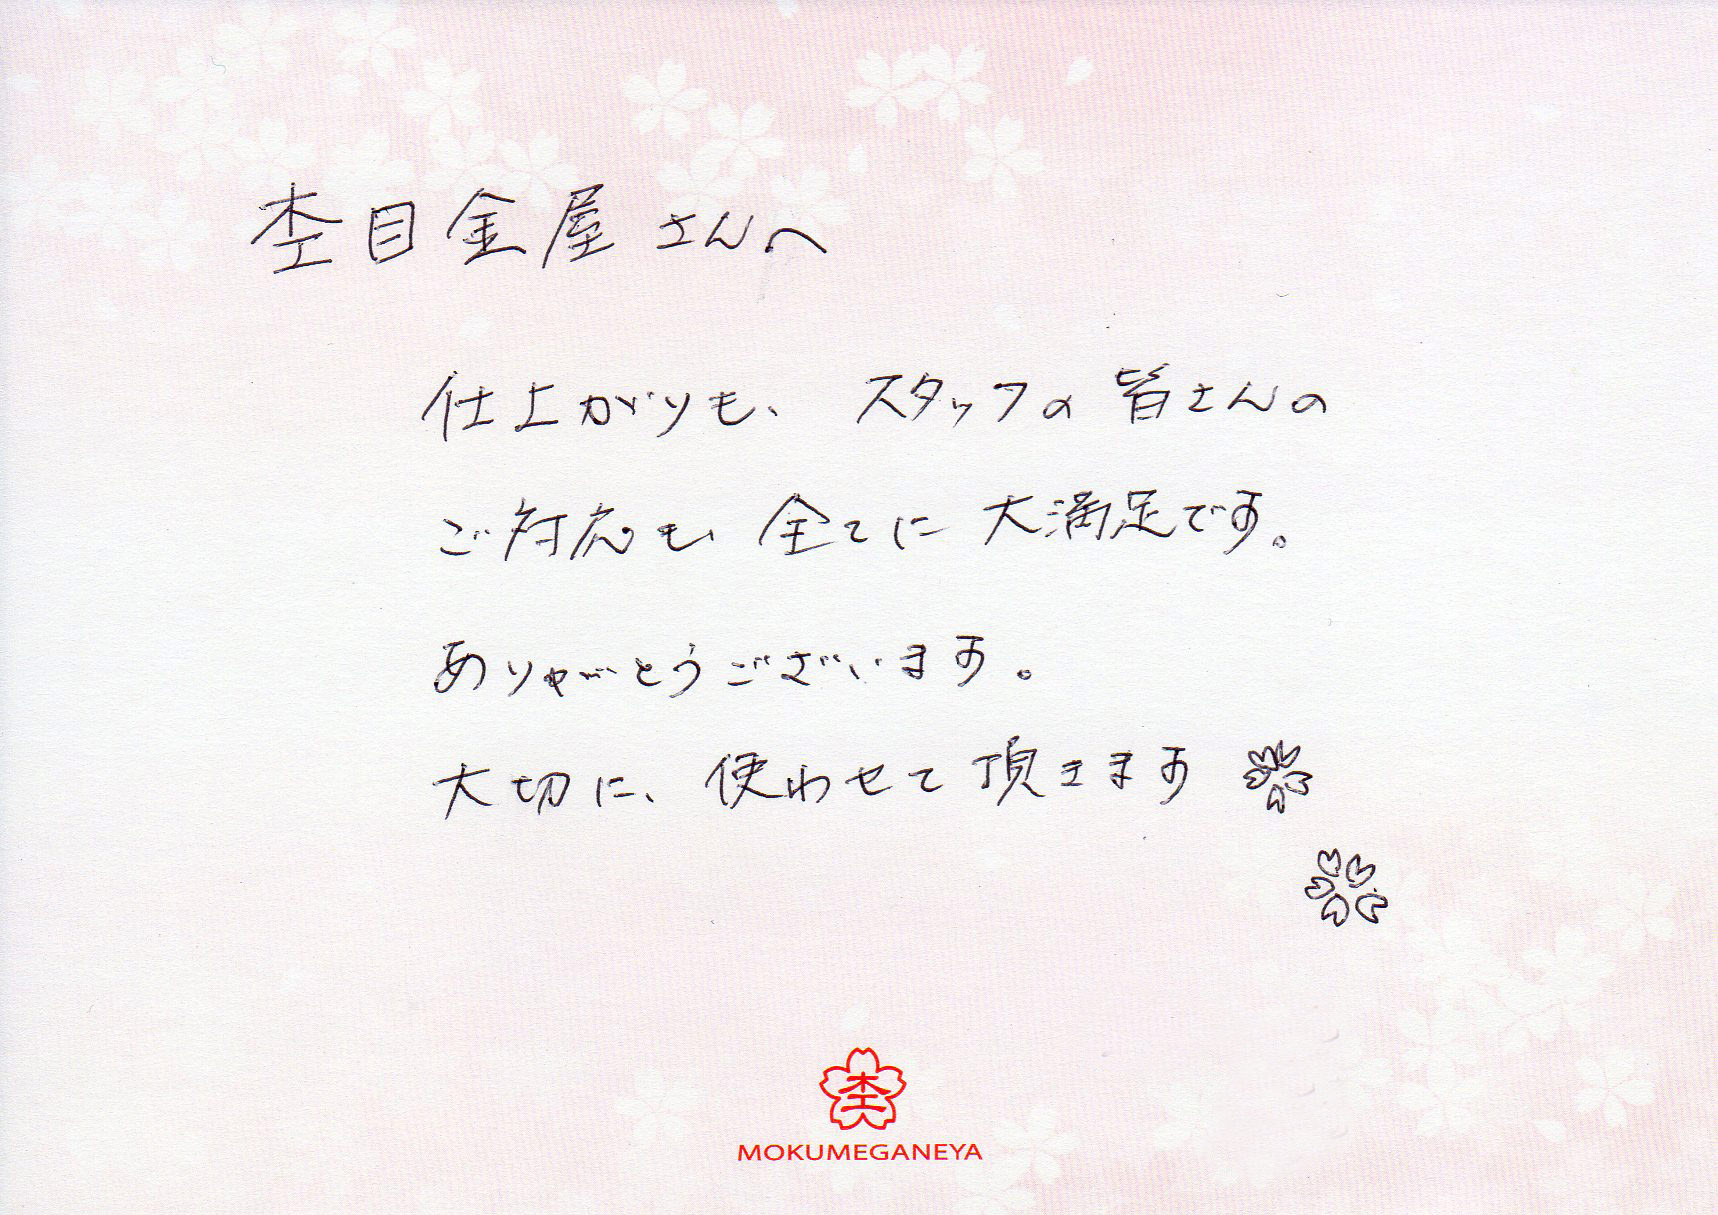 杢目金屋さんへ
仕上がりも、スタッフの皆さんの
ご対応も全てに大満足です。
ありがとうございます。
大切に、使わせて頂きます
杢
MOKUMEGANEYA